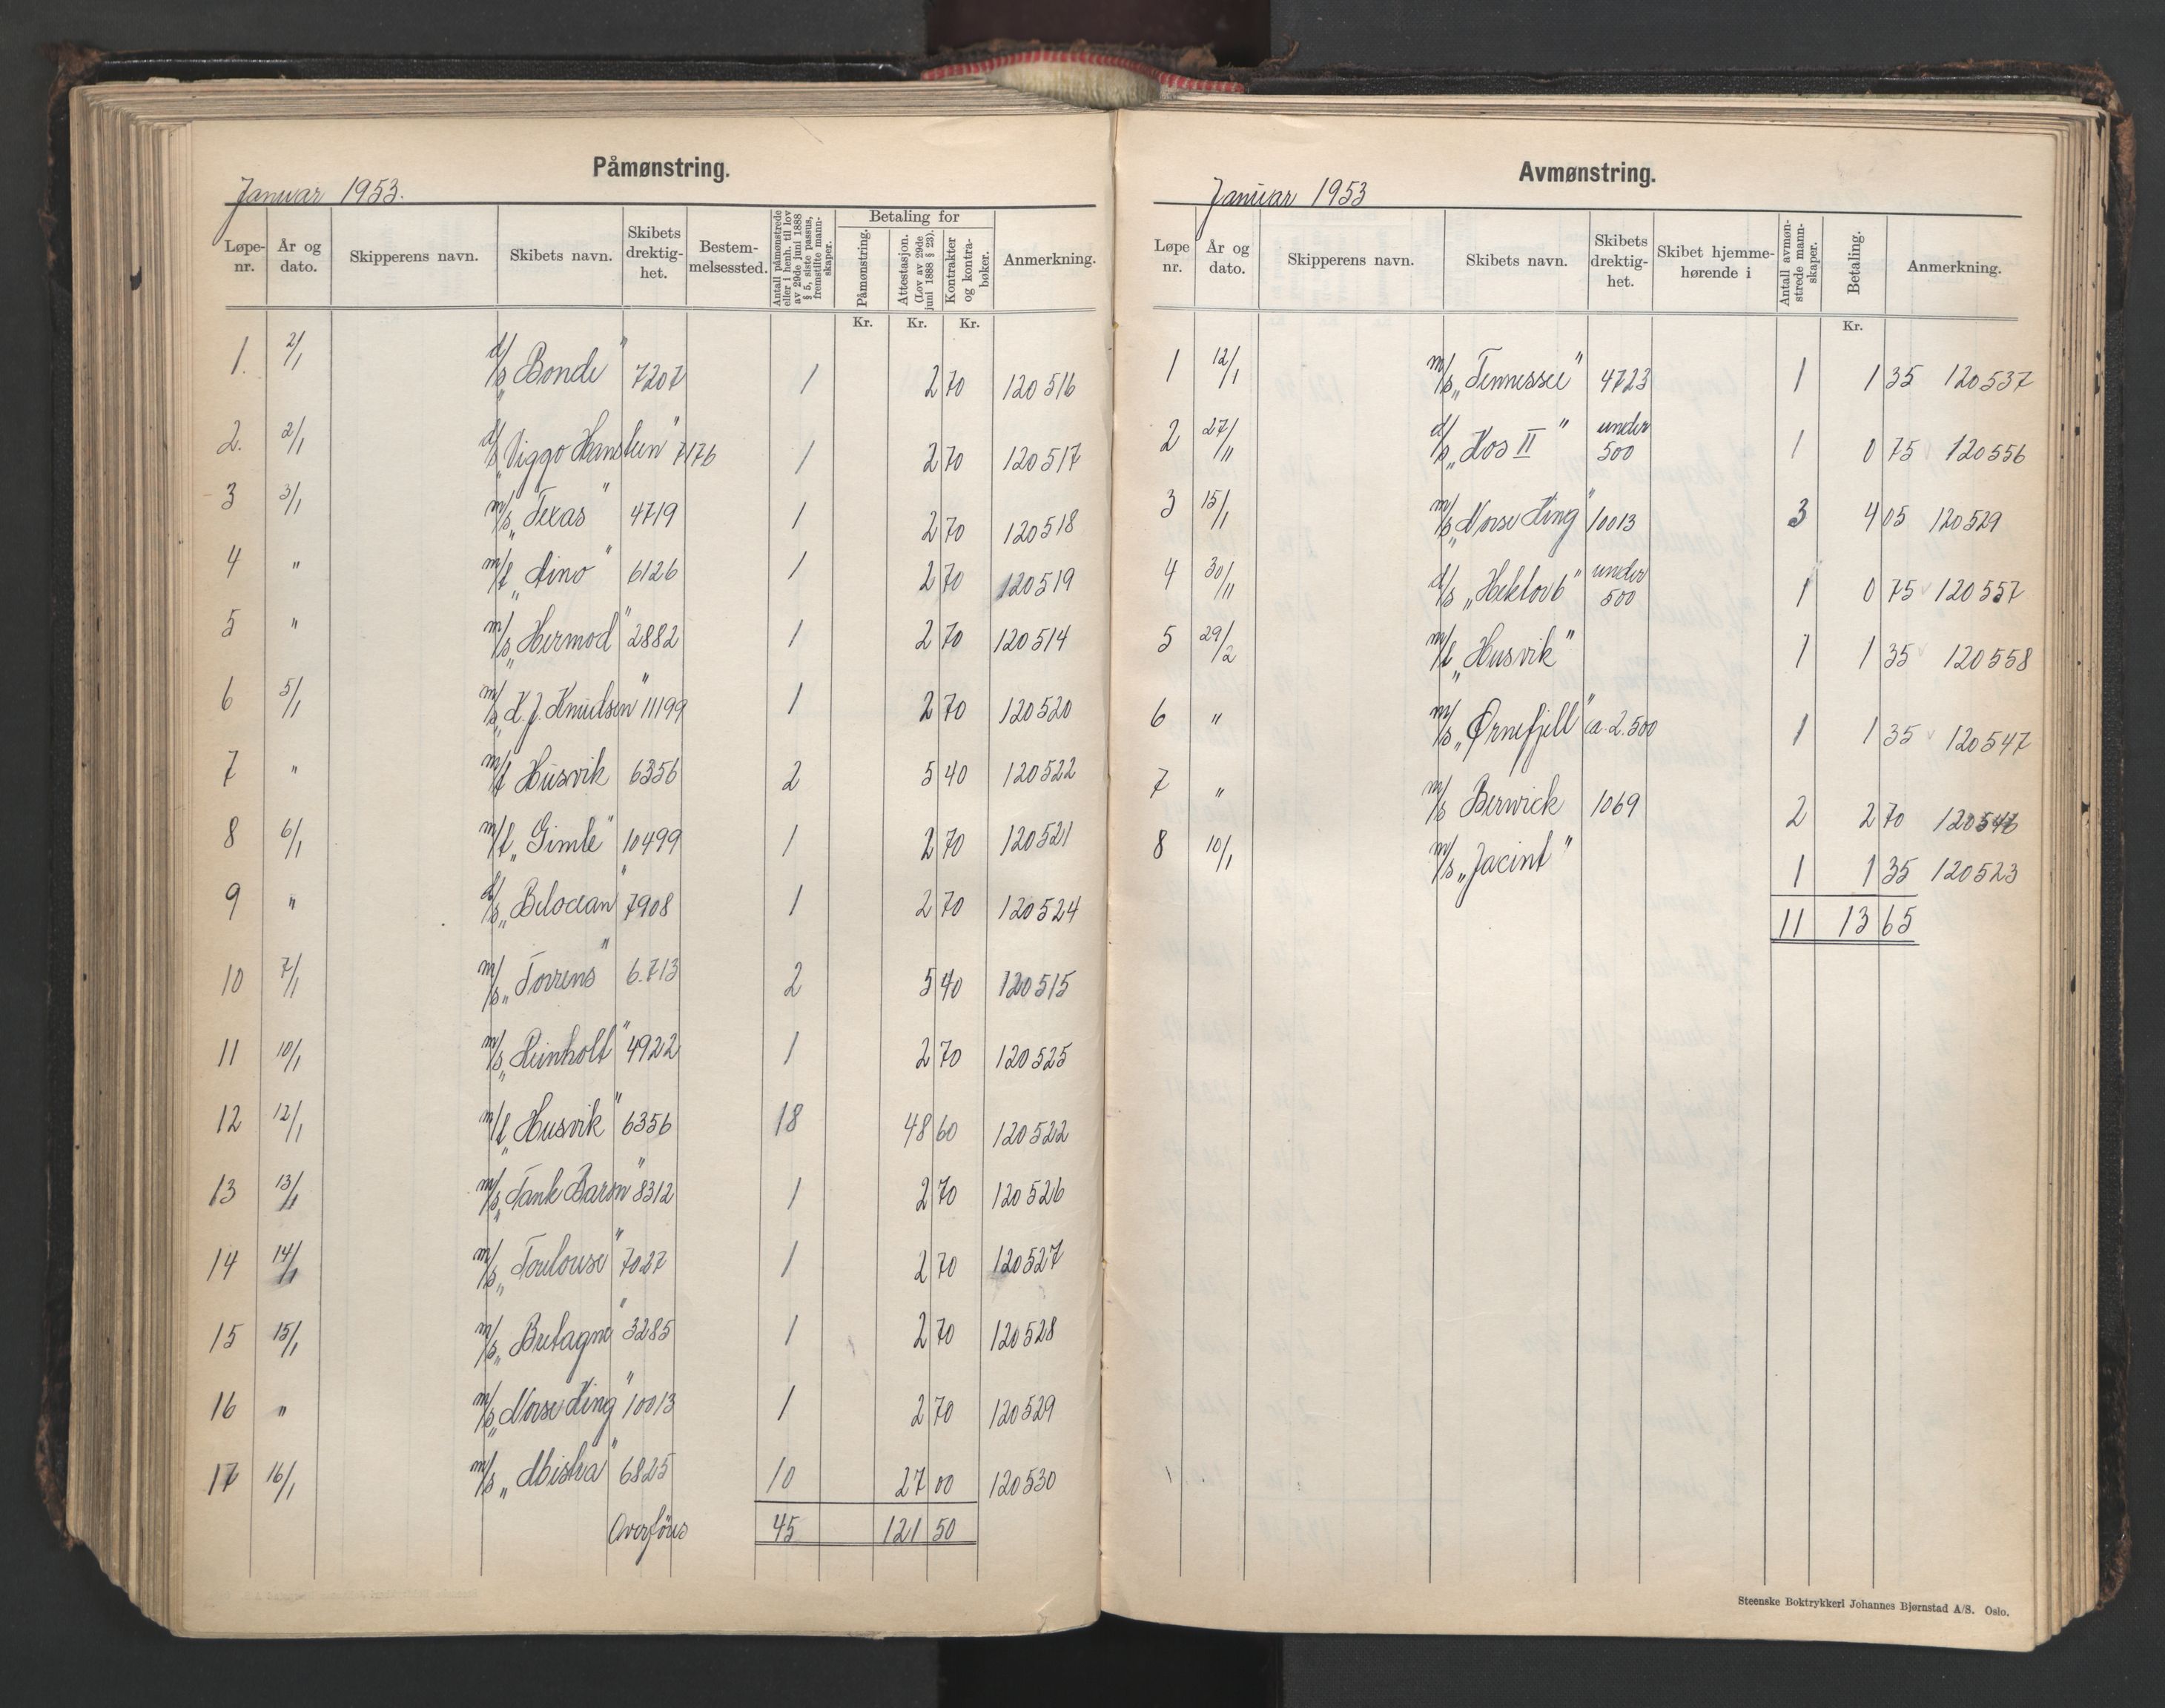 Påmønstring.
Januar 1953.
Løpe-nr. År og dato. Skipperens navn. Skibets navn. Skibets drektig-het. Bestem-melsessted. Antall påmønstrede eller i henh. til lov av 29de juni 1888 § 5, siste passus, fremstilte mann-skaper. Betaling for Påmønstring. Attestasjon. (Lov av 29de juni 1888 § 23). Kontrakter og kontra-bøker. Anmerkning.
Kr. Kr. Kr.
1. 2/1 d/s „Bonde" 7207 1 2 70 120516
2. 2/1 d/s „Viggo Hansteen" 7176 1 2 70 120517
3 3/1 m/s „Texas" 4719 1 2 70 120518
4 " m/t „Aino" 6126 1 2 70 120519
5 " m/s „Hermod" 2882 1 2 70 120514
6 5/1 m/s „K. J. Knudsen" 11199 1 2 70 120520
7 " m/t Husvik 6356 2 5 40 120522
8 6/1 m/t „Gimle" 10499 1 2 70 120521
9 " d/s „Belocean" 7908 1 2 70 120524
10 7/1 m/s „Torrens" 6.713 2 5 40 120515
11 10/1 m/s „Reinholt" 4922 1 2 70 120525
12 12/1 m/t „Husvik" 6356 18 48 60 120522
13 13/1 m/s „Tank Baron" 8312 1 2 70 120526
14 14/1 m/s „Toulouse" 7027 1 2 70 120527
15 15/1 m/s „Bretagne" 3285 1 2 70 120528
16 " m/s „Norse King" 10013 1 2 70 120529
17 16/1 m/s 6825 10 27 00 120530
Overføres 45 121 50
Avmønstring.
Januar 1953
Løpe nr. År og dato. Skipperens navn. Skibets navn. Skibets drektig-het. Skibet hjemme-hørende i Antall avmøn-strede mann-skaper. Betaling. Anmerkning.
Kr.
1 12/1 m/s „Tennessee" 4723 1 1 35 120537
2 27/11 d/s „Kos II" under 500 1 0 75 120556
3 15/1 m/s „Norse King" 10013 3 4 05 120529
4 30/11 d/s „Hektor 6" under 500 1 0 75 120557
5 29/2 m/t „Husvik" 1 1 35 120558
6 " m/s „Ørnefjell" ca. 2.500 1 1 35 120547
7 " m/s Berwick 1069 2 2 70
8 10/1 m/s „Jacint" 1 1 35 120523
11 13 65
Steenske Boktrykkeri Johannes Bjørnstad A/S. Oslo.